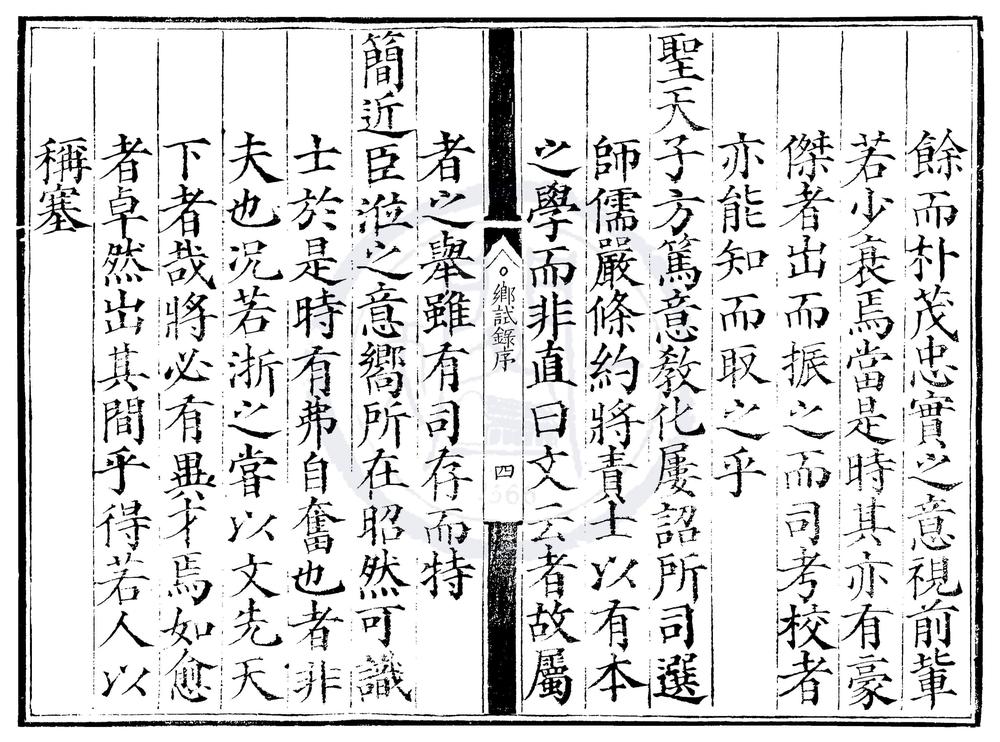 餘而朴茂忠實之意視前輩
若少衰焉當是時其亦有豪
傑者出而振之而司考校者
亦能知而取之乎
聖天子方篤意教化屢詔所司選
師儒嚴條約將責士以有本
之學而非直曰文云者故屬
鄉試錄序
四
者之舉雖有司存而特
簡近臣涖之意嚮所在昭然可識
士於是時有弗自奮也者非
夫也况若浙之嘗以文先天
下者哉將必有異才焉如愈
者卓然出其間乎得若人以
稱塞